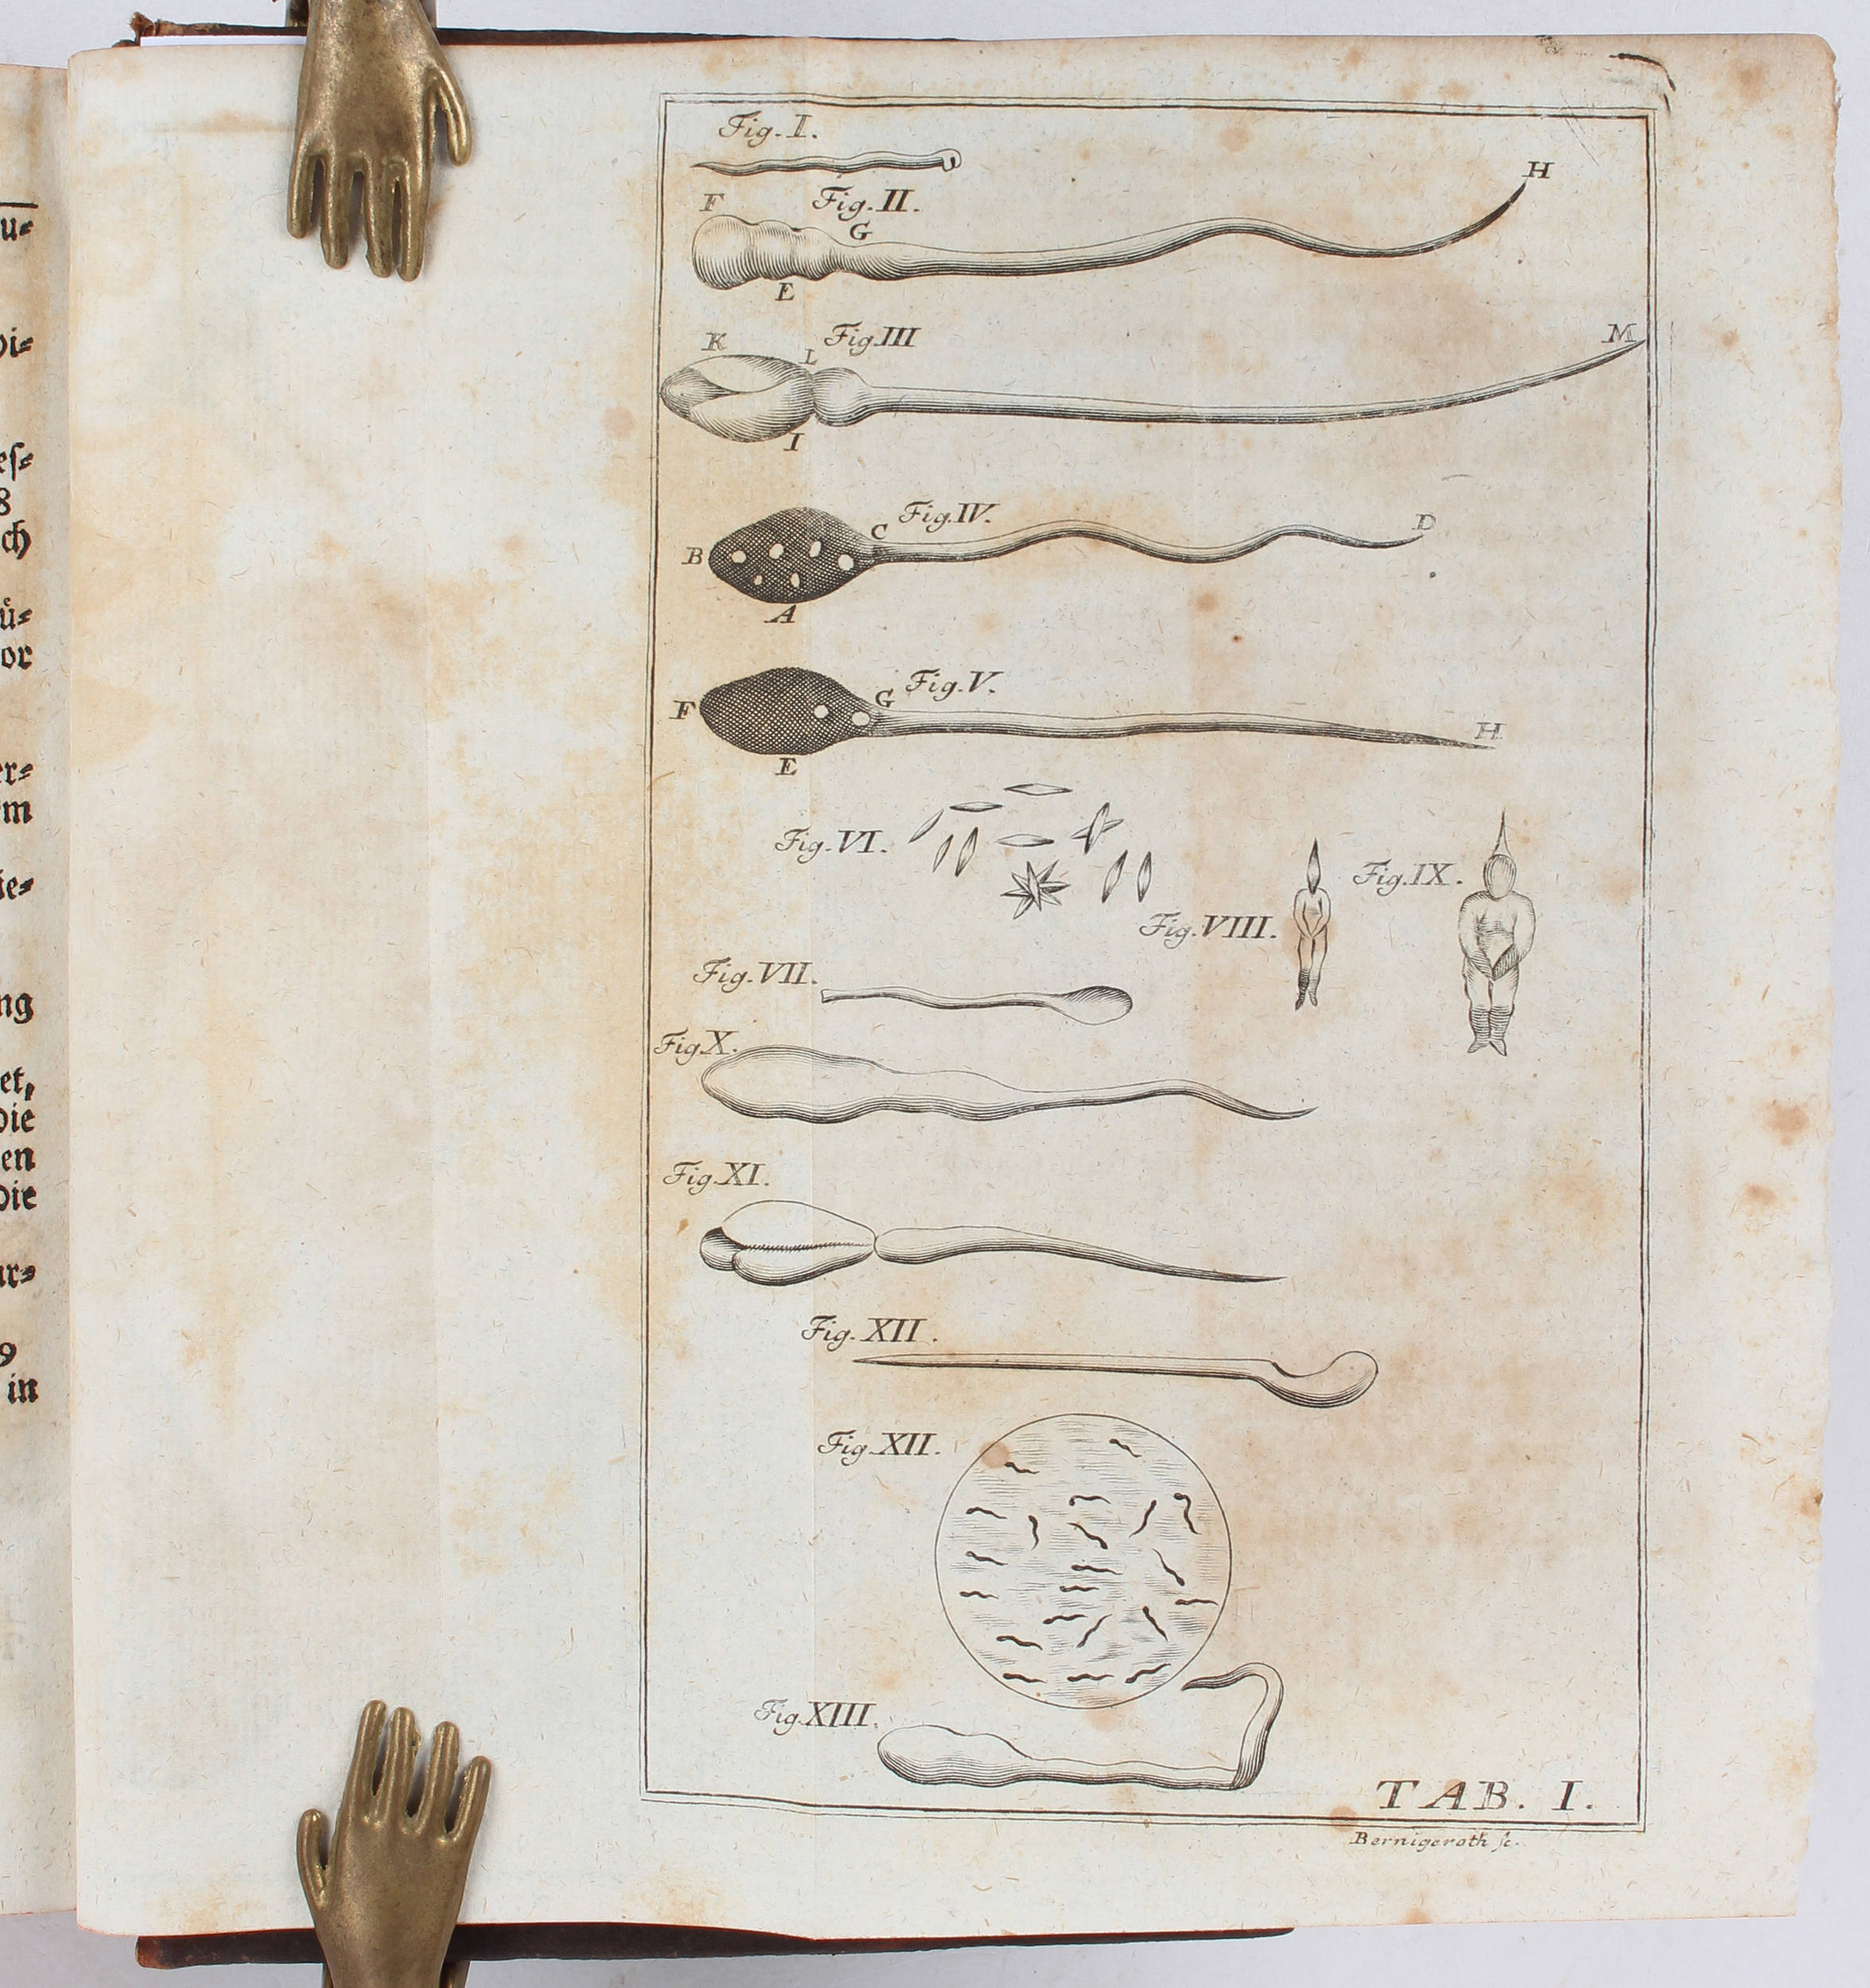 u⸗
oi⸗
es⸗
8
ch
ů⸗
or
er⸗
m
ie⸗
ng
et,
die
en
die
ur⸗
9
in
Fig. I.
H
F
Fig. II.
G
E
K
L
Fig. III
M
I
Fig. IV.
D
B
C
A
Fig. V.
F
G
H
E
Fig. VI.
Fig. IX.
Fig. VIII.
Fig. VII.
Fig. X.
Fig. XI.
Fig. XII.
Fig. XII.
Fig. XIII.
TAB. I.
Bernigeroth sc.